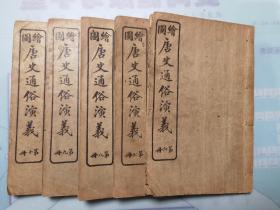 繪圖唐史通俗演義
第六冊
繪圖唐史通俗演義
第七冊
繪圖唐史通俗演義
第八冊
繪圖唐史通俗演義
第九冊
繪圖唐史通俗演義
第十冊